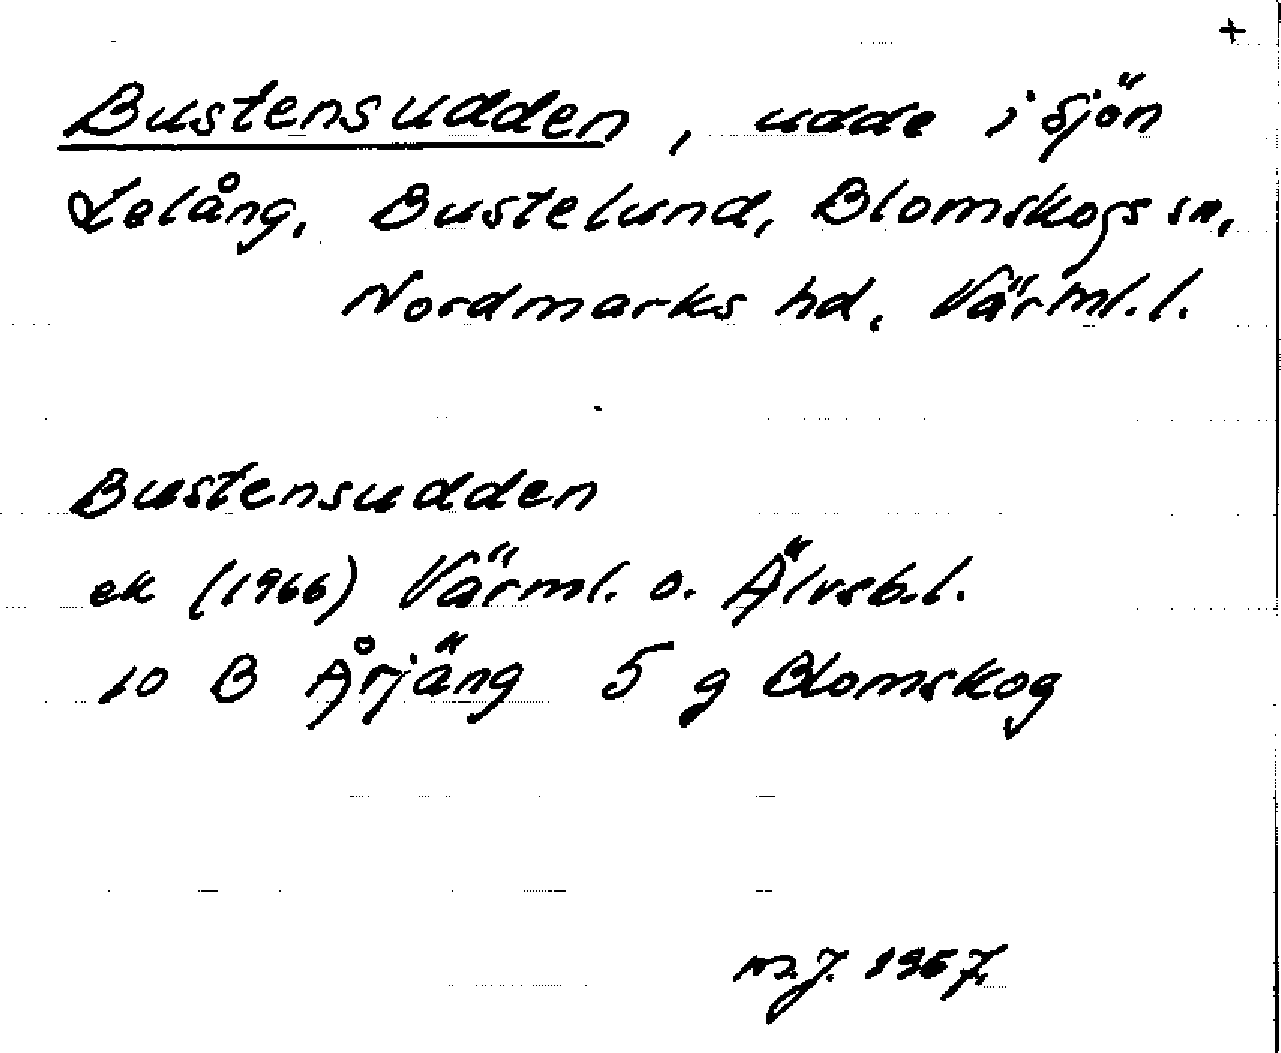 +
Bustensudden, udde i sjön
Lelång, Bustelund, Blomskogs sn,
Nordmarks hd, Värml. l.
Bustensudden
ek (1966) Värml. o. Älvsb. l.
10 B Årjäng 5 g Blomskog
M.J. 1967.